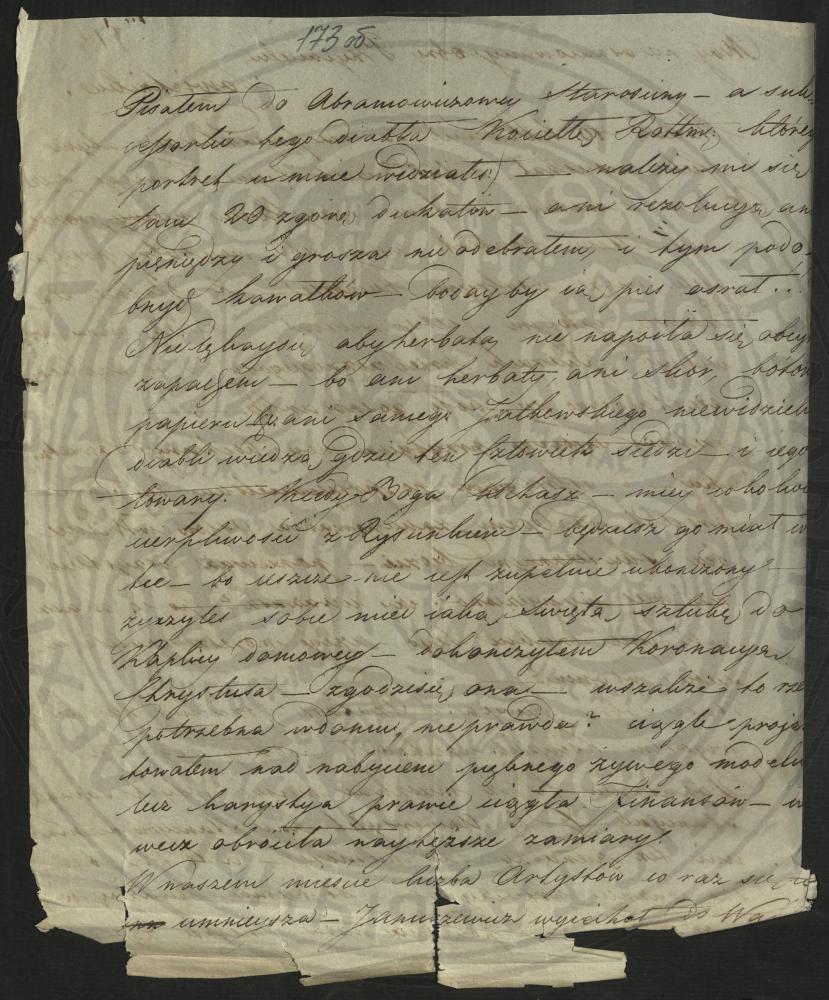 173 об
Pisałem do Abramowiczowey Starościny – a suk
wsparli tego diabła Kociełłę Rottm. którey
portret u mnie widziałeś) – należy mi się
tam 20 zgórą dukatów – ani rezolucyą, an
pieniędzy i grosza nieodebrałem, i tym podo-
bnych kawałków – bodayby ią pies osrał..
Nielękaysię, aby herbata, nie napoiła się obcym
zapachem – bo ani herbaty, ani skór, botów
papieru, ani samego Jatkowskiego niewidziełe
diabli wiedzą gdzie ten Człowiek siedzi – i iego
towary. Kiedy Boga kochasz – miey
cierpliwość z Rysunkiem – będziesz go miał u
bie – bo ieszcze nie iest zupełnie ukończony –
życzyłeś sobie mieć iaką Świętą sztukę do
Kaplicy domowey – dokończyłem Koronacyą
Chrystusa – zgodzisię ona – wszakże to rze
potrzebna wdomu, nieprawda? ciągle projek
towałem nad nabyciem pięknego żywego modelu
lecz karystya prawie ciągła Finansów – w
wecz obróciła naytęższe zamiary.
Wnaszem mieście liczba Artystów co raz się
umnieysza – Januszewicz wyiechał do Wa